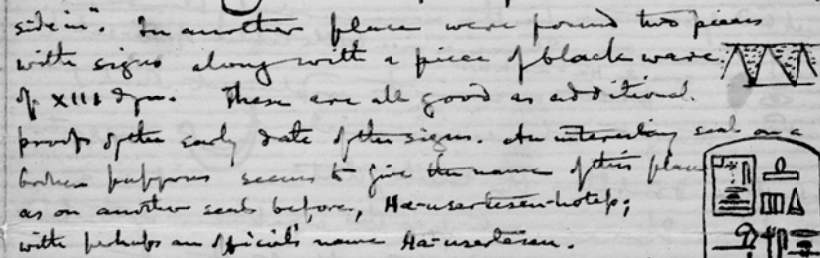 side in". In another place were found two pieces
with signs along with a piece of black ware
of XIII dyn. These are all good as additional
proofs of the early date of the signs. An interesting seal on a
broken papyrus seems to give the name of this place
as on another seal before, Ha-usertesen-hotep;
with perhaps an official's name Ha-usertesen.